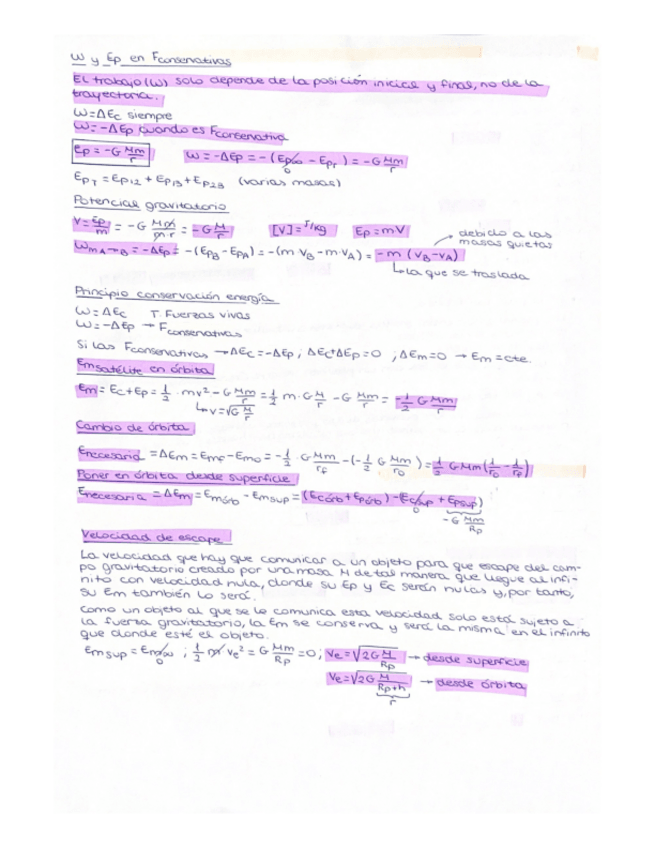 W y Ep en Fconservativas
El trabajo (W) solo depende de la posición inicial y final, no de la
trayectoria.
W=ΔEc siempre
W=-ΔEp cuando es Fconservativa
Ep=-G Mm/r W=-ΔEp=-(Ep∞ - Epr)=-G Mm/r
0
EpT=Ep12+Ep13+Ep23 (varias masas)
Potencial gravitatorio
V=Ep/m = -G Mm/m·r = -G M/r [V]=J/kg Ep=mV
debido a las
masas quietas
WmA→B=-ΔEp=-(EpB-EpA)=-(m·VB-m·VA)=-m(VB-VA)
↳ la que se traslada
Principio conservación energía
W=ΔEc T. Fuerzas vivas
W=-ΔEp → Fconservativas
Si las Fconservativas → ΔEc=-ΔEp; ΔEc+ΔEp=0; ΔEm=0 → Em=cte.
Em satélite en órbita
Em=Ec+Ep=1/2·mv²-G Mm/r=1/2 m·G M/r - G Mm/r = -1/2 G Mm/r
↳v=√G M/r
Cambio de órbita
Enecesaria=ΔEm=Emf-Emo=-1/2·G Mm/rf-(-1/2 G Mm/r0)=1/2 GMm(1/r0-1/rf)
Poner en órbita desde superficie
Enecesaria=ΔEm=Emórb-Emsup=(Ecórb+Epórb)-(Ecsup+Epsup)
0
-G Mm/Rp
Velocidad de escape
La velocidad que hay que comunicar a un objeto para que escape del cam-
po gravitatorio creado por una masa M de tal manera que llegue al infi-
nito con velocidad nula, donde su Ep y Ec serán nulas y, por tanto,
su Em también lo será.
Como un objeto al que se le comunica esta velocidad solo está sujeto a
la fuerza gravitatoria, la Em se conserva y será la misma en el infinito
que donde esté el objeto.
Emsup=Em∞; 1/2 m ve²=G Mm/Rp=0; Ve=√2G M/Rp → desde superficie
0
Ve=√2G M/Rp+h → desde órbita
r